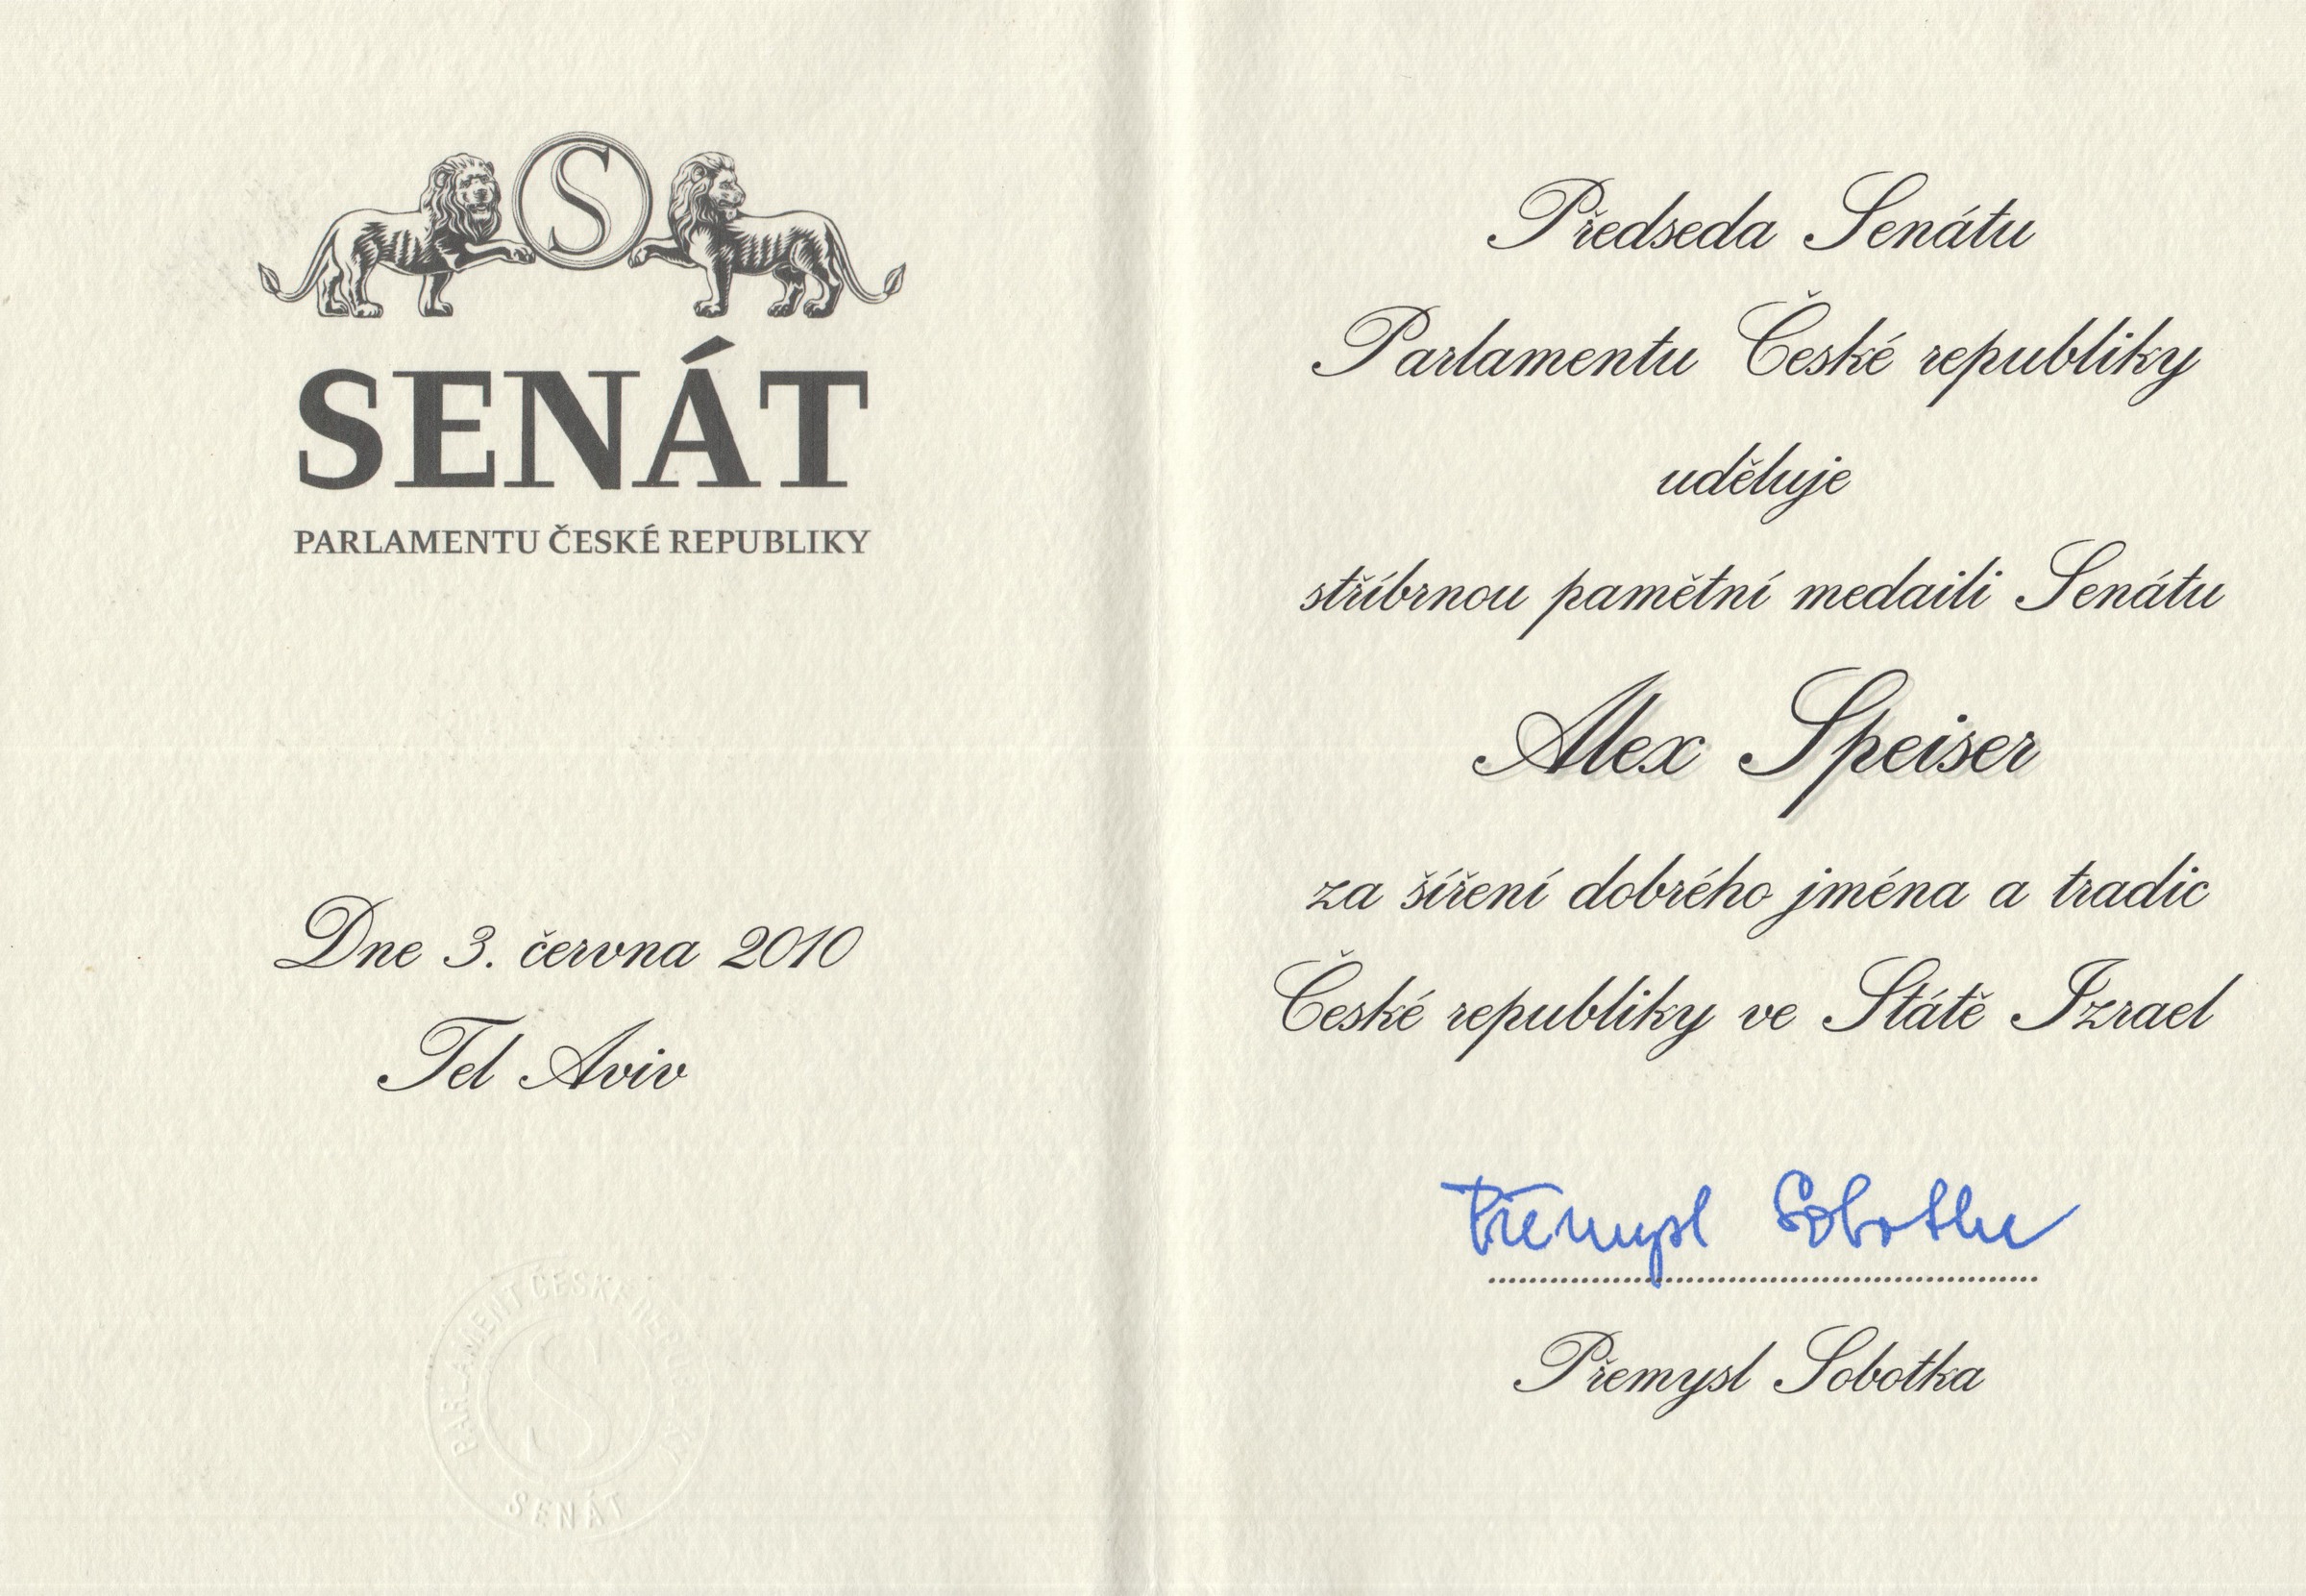 S
SENÁT
PARLAMENTU ČESKÉ REPUBLIKY
Dne 3. června 2010
Tel Aviv
PARLAMENT ČESKÉ REPUBLIKY
S
SENÁT
Předseda Senátu
Parlamentu České republiky
uděluje
stříbrnou pamětní medaili Senátu
Alex Speiser
za šíření dobrého jména a tradic
České republiky ve Státě Izrael
Přemysl Sobotka
Přemysl Sobotka